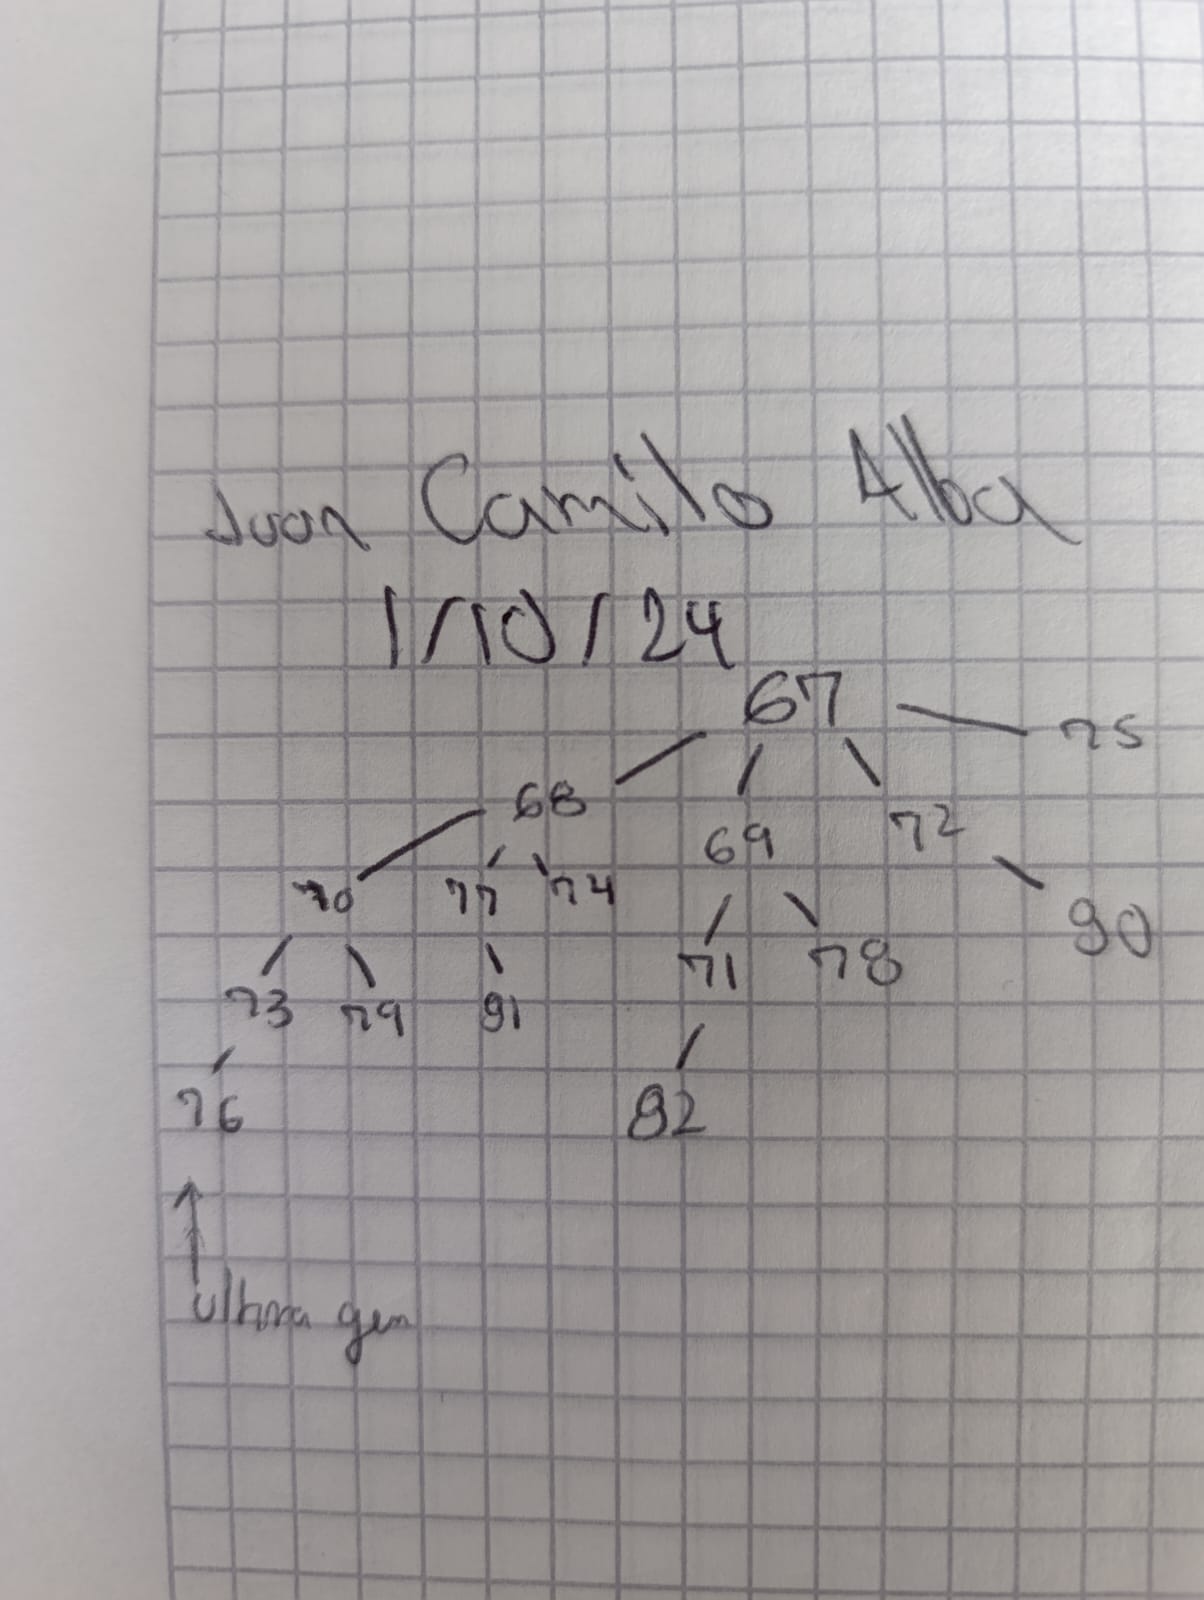 Juan Camilo Alba
1/10/24
67
75
68
69
72
70
77
74
90
71
78
73
79
91
76
82
ultima gen